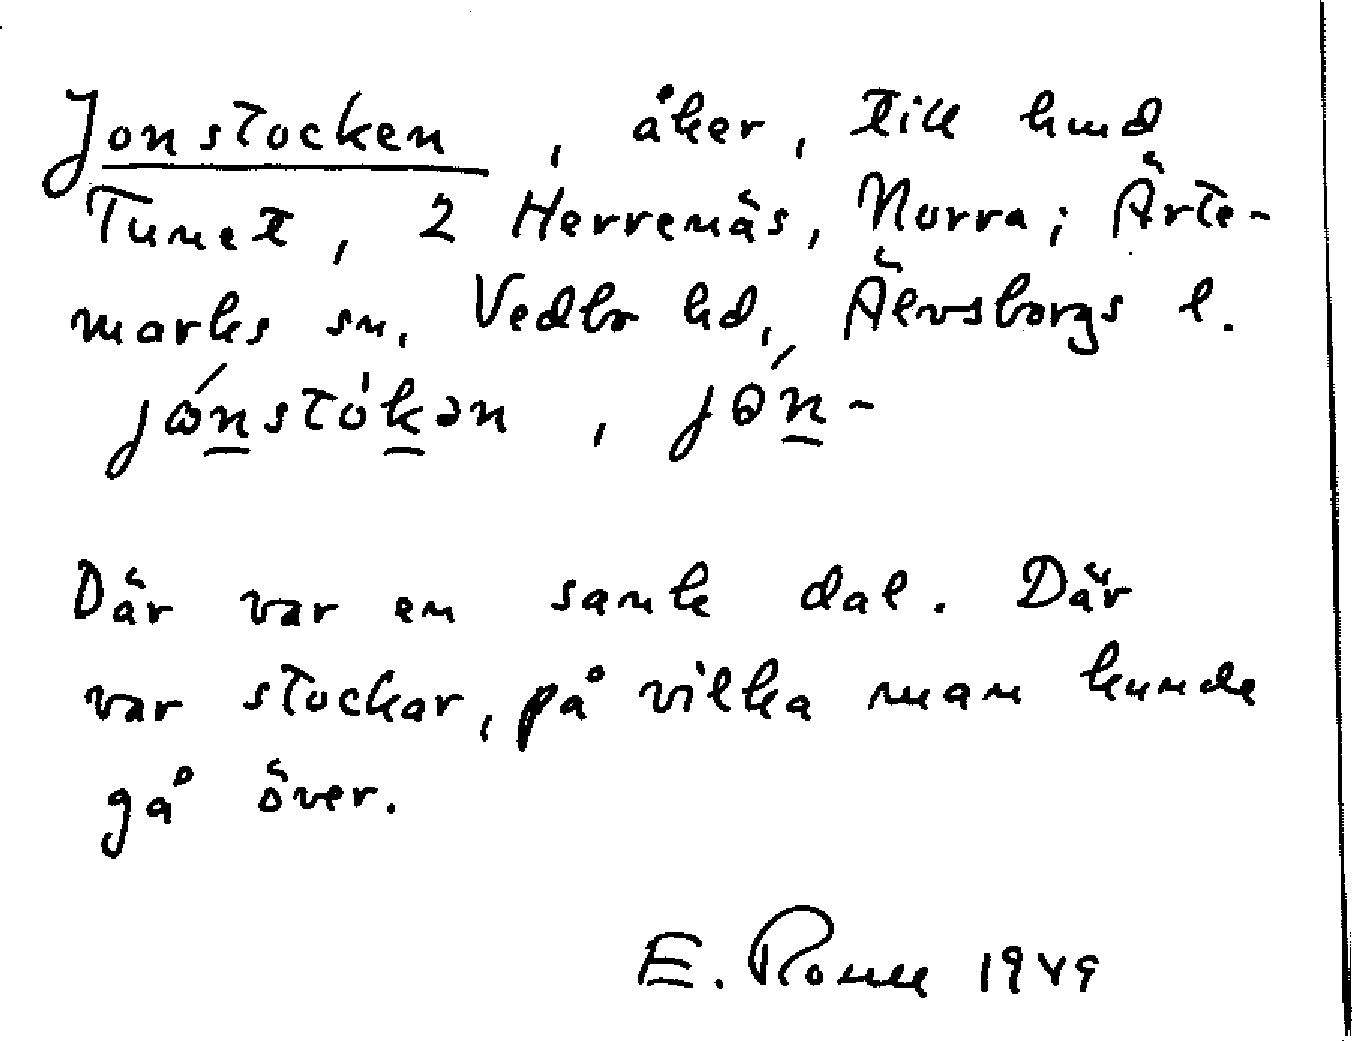 Jonstocken, åker, till hmd
Tunet, 2 Herrenäs, Norra; Ärte-
marks sn. Vedbo hd, Älvsborgs l.
Där var en sank dal. Där
var stockar, på vilka man kunde
gå över.
E. 1949